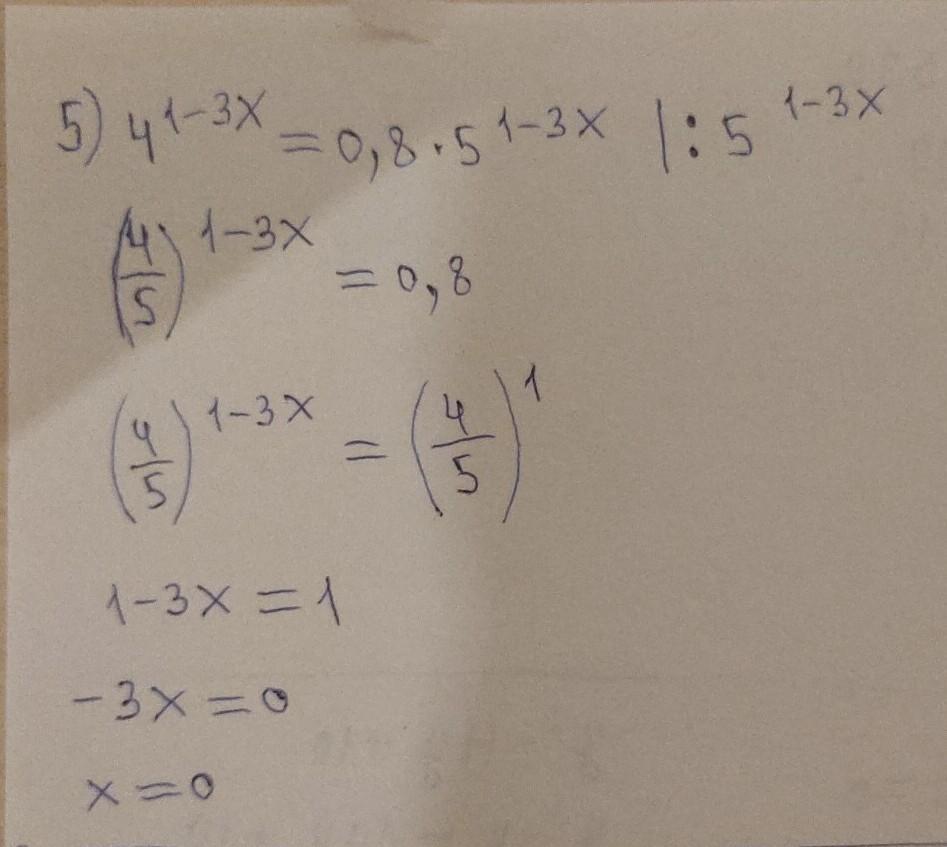 5) 4^{1-3x} = 0,8 · 5^{1-3x} | : 5^{1-3x}
(4/5)^{1-3x} = 0,8
(4/5)^{1-3x} = (4/5)^1
1-3x = 1
-3x = 0
x = 0